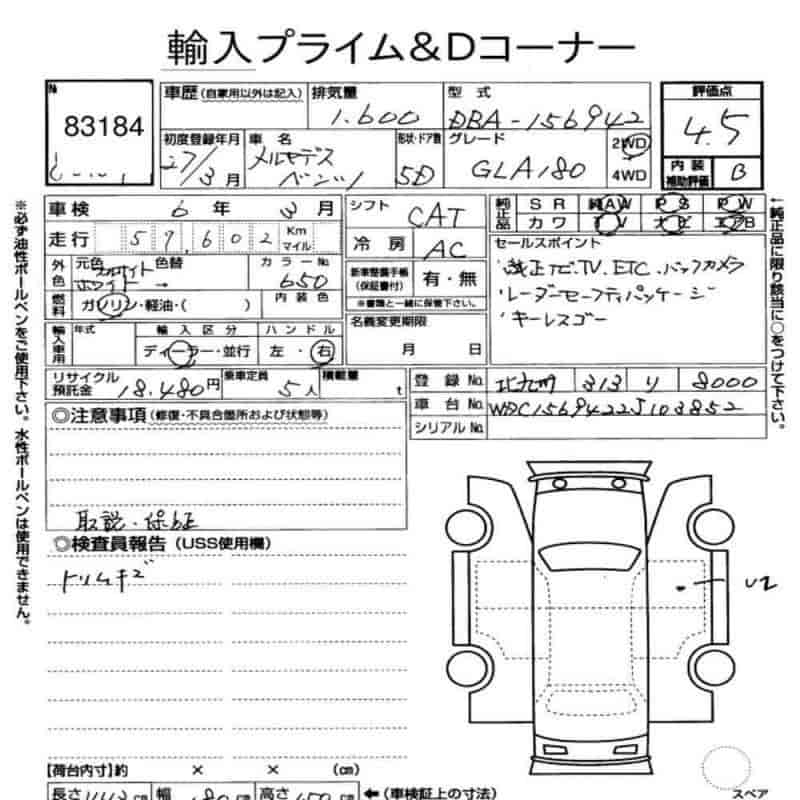 輸入プライム&Dコーナー
No 83184
車歴(自家用以外は記入)
排気量 1.600
型式 DBA-156942
評価点 4.5
初度登録年月 27/3月
車名 メルセデスベンツ
形状・ドア数 5D
グレード GLA180
2WD
4WD
内装補助評価 B
車検 6年 3月
走行 57,602 Km マイル
外色 元色 ホワイト 色替 →
カラーNo 650
燃料 ガソリン・軽油・( )
内装色
輸入車用 年式
輸入区分 ディーラー・並行
ハンドル 左・右
リサイクル預託金 18.480円
乗車定員 5人
積載量 t
シフト CAT
冷房 AC
新車整備手帳(保証書付) 有・無
※書類と一緒に保管下さい。
名義変更期限
月 日
純正品 SR 純AW PS PW
カワ TV ナビ エアB
セールスポイント
・純正ナビ、TV、ETC、バックカメラ
・レーダーセーフティパッケージ
・キーレスゴー
登録No. 北九州 313 り 8000
車台No. WDC1569422J103852
シリアルNo.
◎注意事項(修復・不具合箇所および状態等)
取説・保証
◎検査員報告(USS使用欄)
トリムキズ
U2
スペア
【荷台内寸】約 × × (cm)
長さ 幅 高さ
←(車検証上の寸法)
※必ず油性ボールペンをご使用下さい。水性ボールペンは使用できません。
←純正品に限り該当に○をつけて下さい。